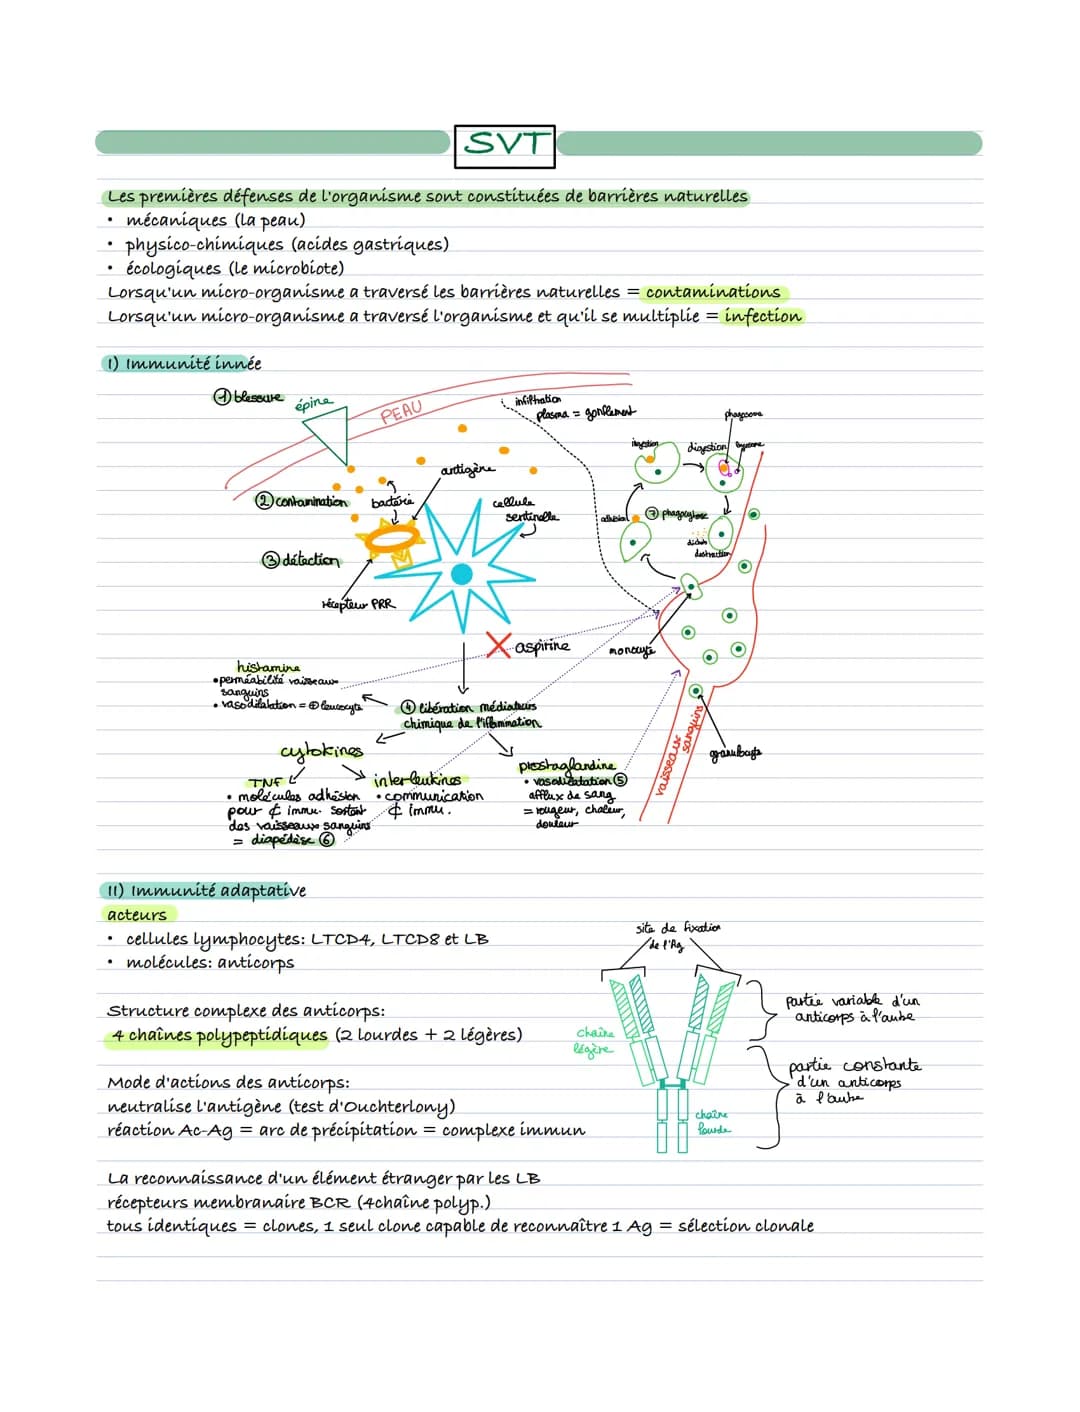 SVT
Les premières défenses de l'organisme sont constituées de barrières naturelles
• mécaniques (la peau)
• physico-chimiques (acides gastriques)
• écologiques (le microbiote)
Lorsqu'un micro-organisme a traversé les barrières naturelles = contaminations
Lorsqu'un micro-organisme a traversé l'organisme et qu'il se multiplie = infection
I) Immunité innée
① blessure
épine
PEAU
infiltration
plasma = gonflement
phagosome
ingestion
digestion
lysosome
antigène
② contamination
bactérie
cellule
sentinelle
adhésion
⑦ phagocytose
déchets
destruction
③ détection
récepteur PRR
aspirine
monocyte
histamine
• perméabilité vaisseaux
sanguins
• vasodilatation = ⊕ leucocyte
④ libération médiateurs
chimique de l'inflammation
cytokines
TNF
• molécules adhésion
pour ₵ immu. sortent
des vaisseaux sanguins
= diapédèse ⑥
interleukines
• communication
₵ immu.
prostaglandine
• vasodilatation ⑤
afflux de sang
= rougeur, chaleur,
douleur
vaisseaux
sanguins
granulocyte
II) Immunité adaptative
acteurs
• cellules lymphocytes: LTCD4, LTCD8 et LB
• molécules: anticorps
site de fixation
de l'Ag
Structure complexe des anticorps:
4 chaînes polypeptidiques (2 lourdes + 2 légères)
chaîne
légère
partie variable d'un
anticorps à l'autre
partie constante
d'un anticorps
à l'autre
chaîne
lourde
Mode d'actions des anticorps:
neutralise l'antigène (test d'Ouchterlony)
réaction Ac-Ag = arc de précipitation = complexe immun
La reconnaissance d'un élément étranger par les LB
récepteurs membranaire BCR (4chaîne polyp.)
tous identiques = clones, 1 seul clone capable de reconnaître 1 Ag = sélection clonale